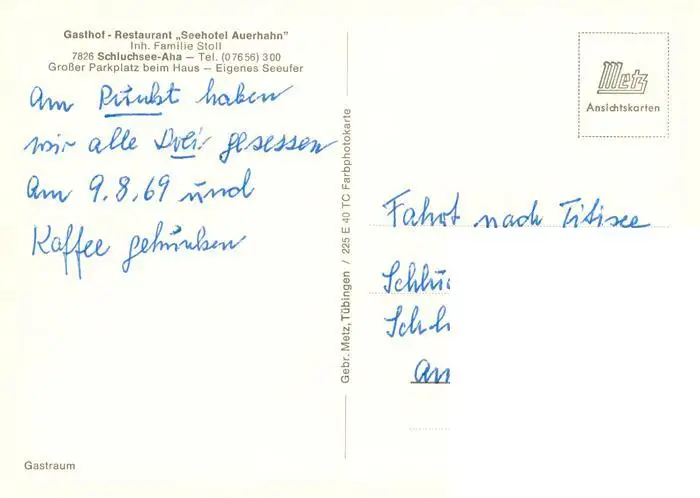 Gasthof - Restaurant „Seehotel Auerhahn"
Inh. Familie Stoll
7826 Schluchsee-Aha — Tel. (07656) 300
Großer Parkplatz beim Haus — Eigenes Seeufer
Am Punkt haben
wir alle Drei gesessen
Am 9.8.69 und
Kaffee getrunken
Gastraum
Gebr. Metz, Tübingen / 225 E 40 TC Farbphotokarte
Metz
Ansichtskarten
Fahrt nach Titisee